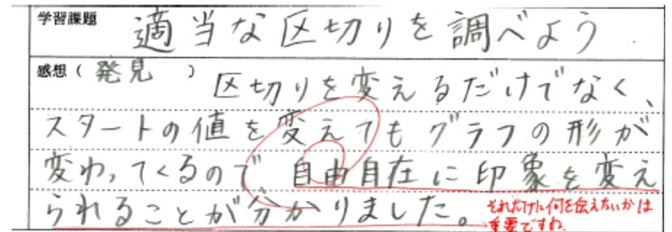 学習課題 適当な区切りを調べよう
感想(発見)
区切りを変えるだけでなく、
スタートの値を変えてもグラフの形が
変わってくるので 自由自在に印象を変え
られることが分かりました。
それだけに何を伝えたいかは
重要ですね。